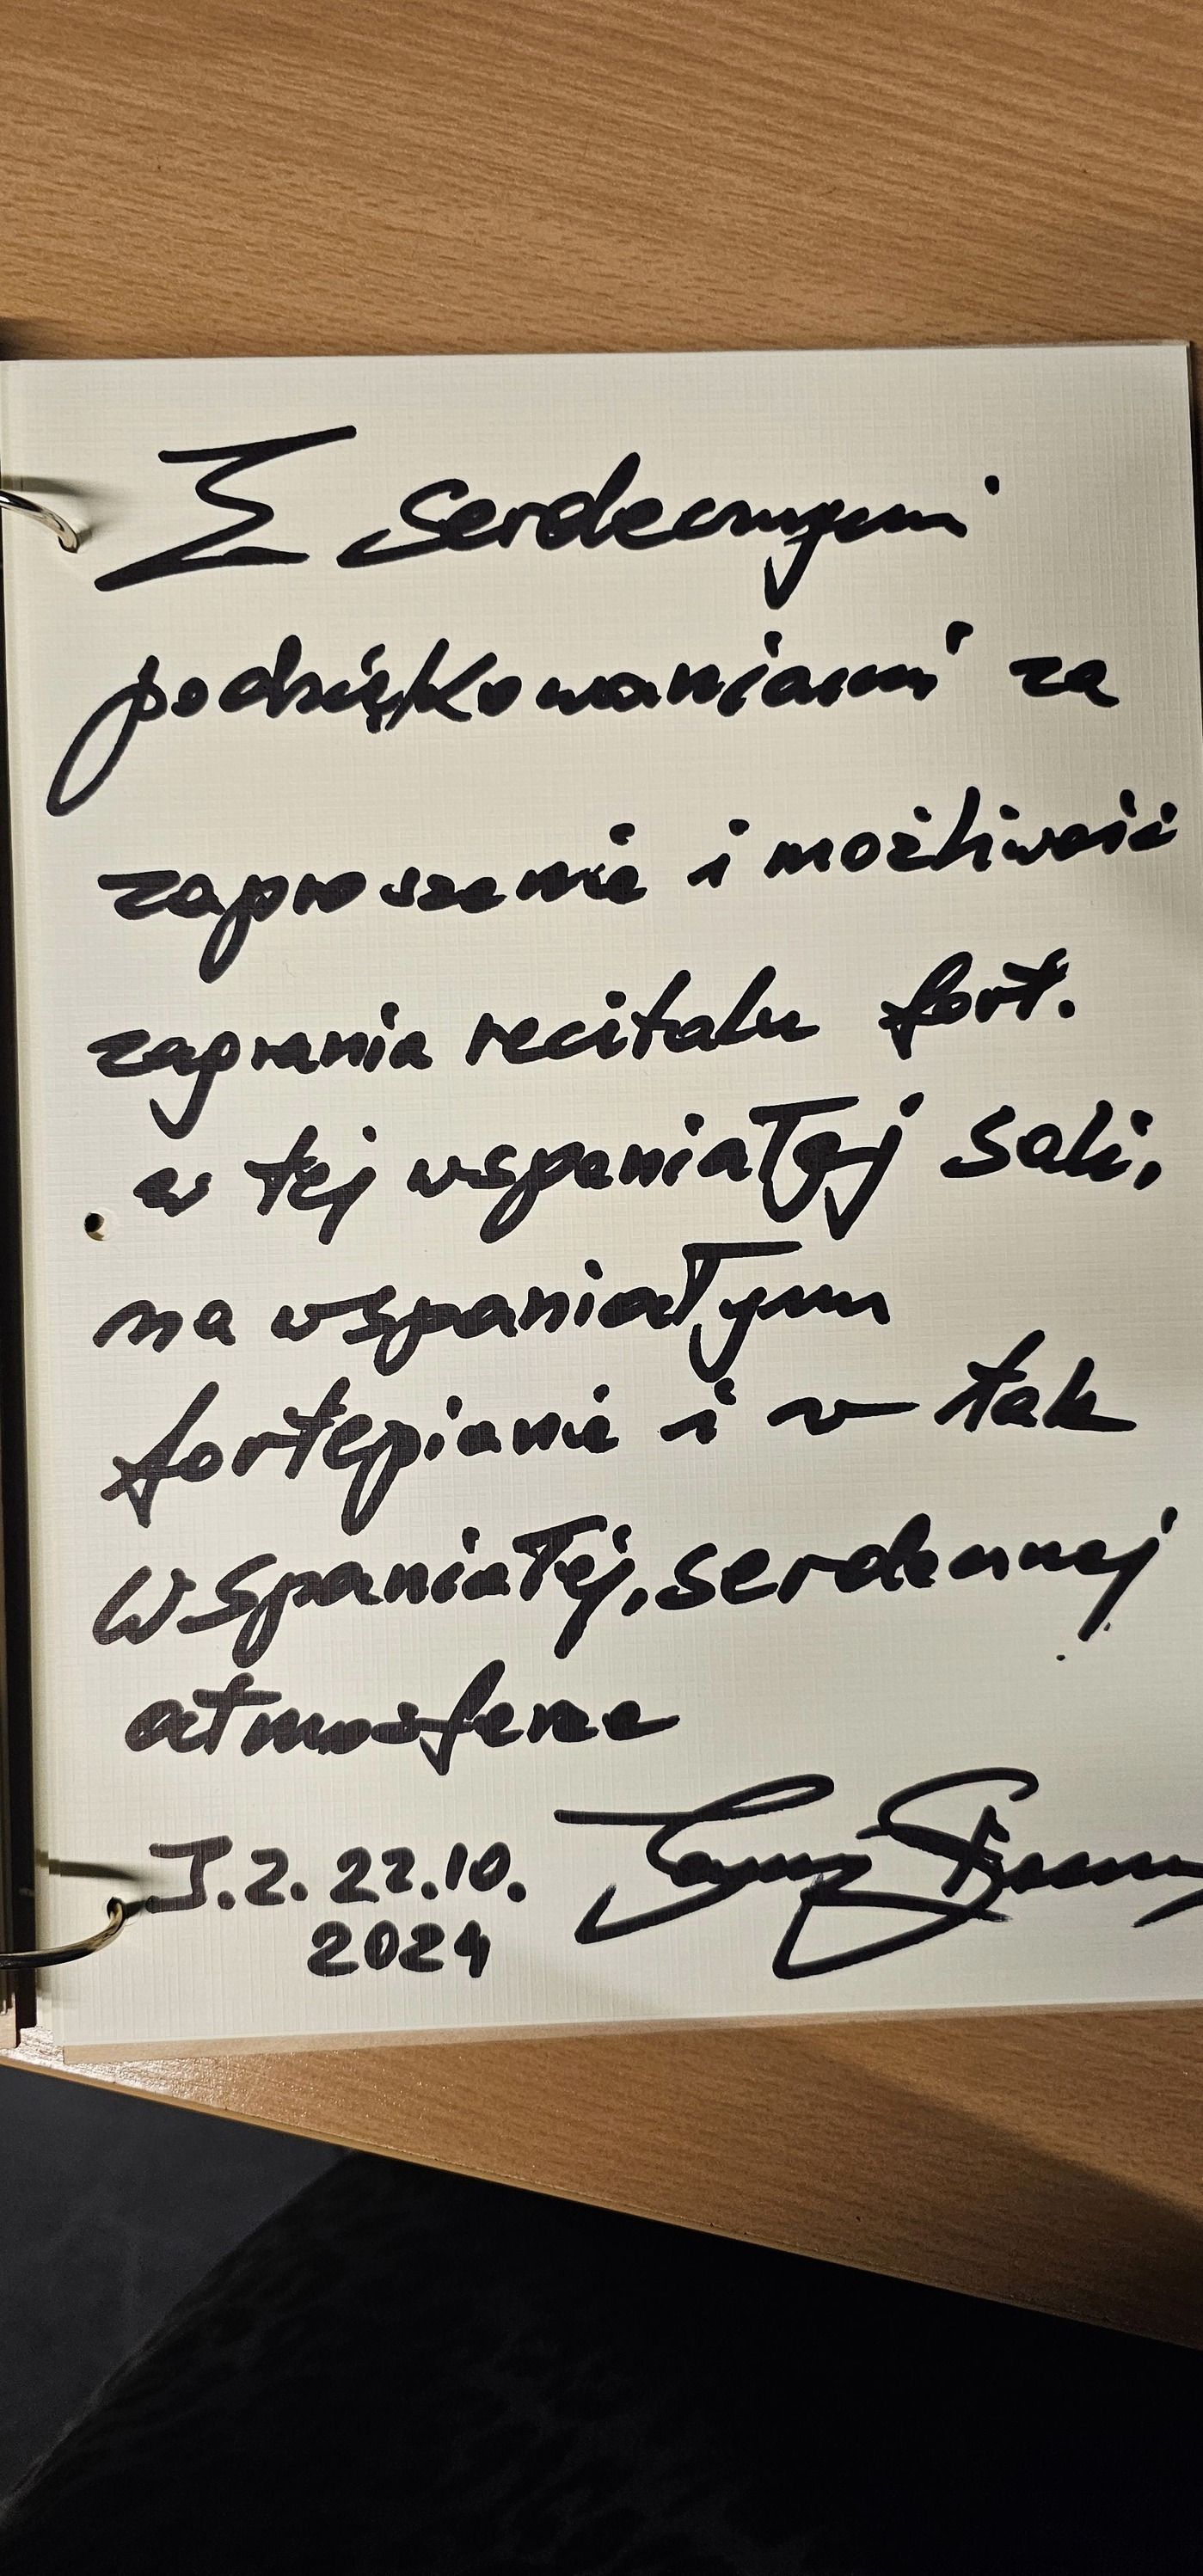 Z serdecznymi
podziękowaniami za
zaproszenie i możliwość
zagrania recitalu fort.
w tej wspaniałej sali,
na wspaniałym
fortepianie i w tak
wspaniałej, serdecznej
atmosferze
J.Z. 22.10.
2024